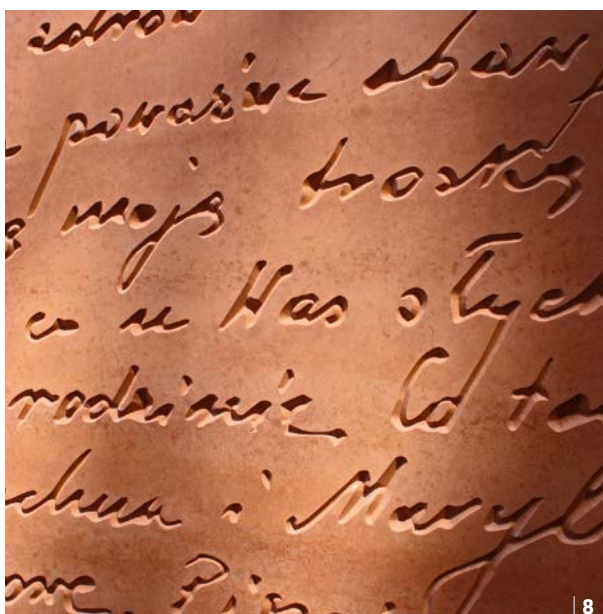 zdrow
poważne obaw
moją troską
co u Was słych
rodzinie Co ta
i Maryl
8